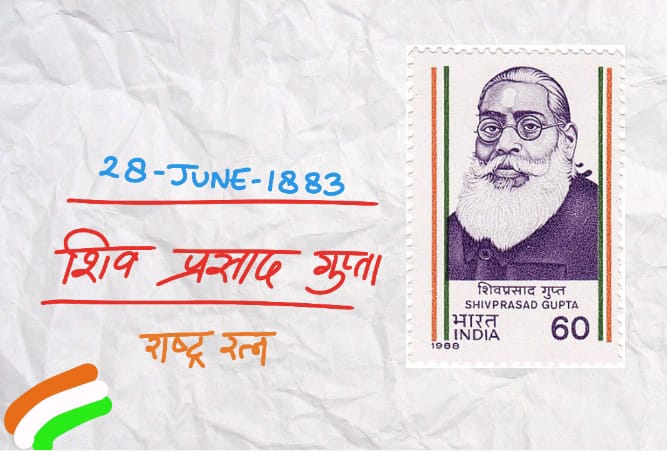 28-JUNE-1883
शिव प्रसाद गुप्ता
राष्ट्र रत्न
शिवप्रसाद गुप्त
SHIVPRASAD GUPTA
भारत
INDIA
60
1988